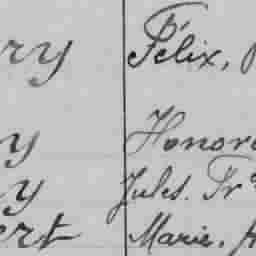 ry Félix,
y Honoré
y Jules. Fr
ert Marie.